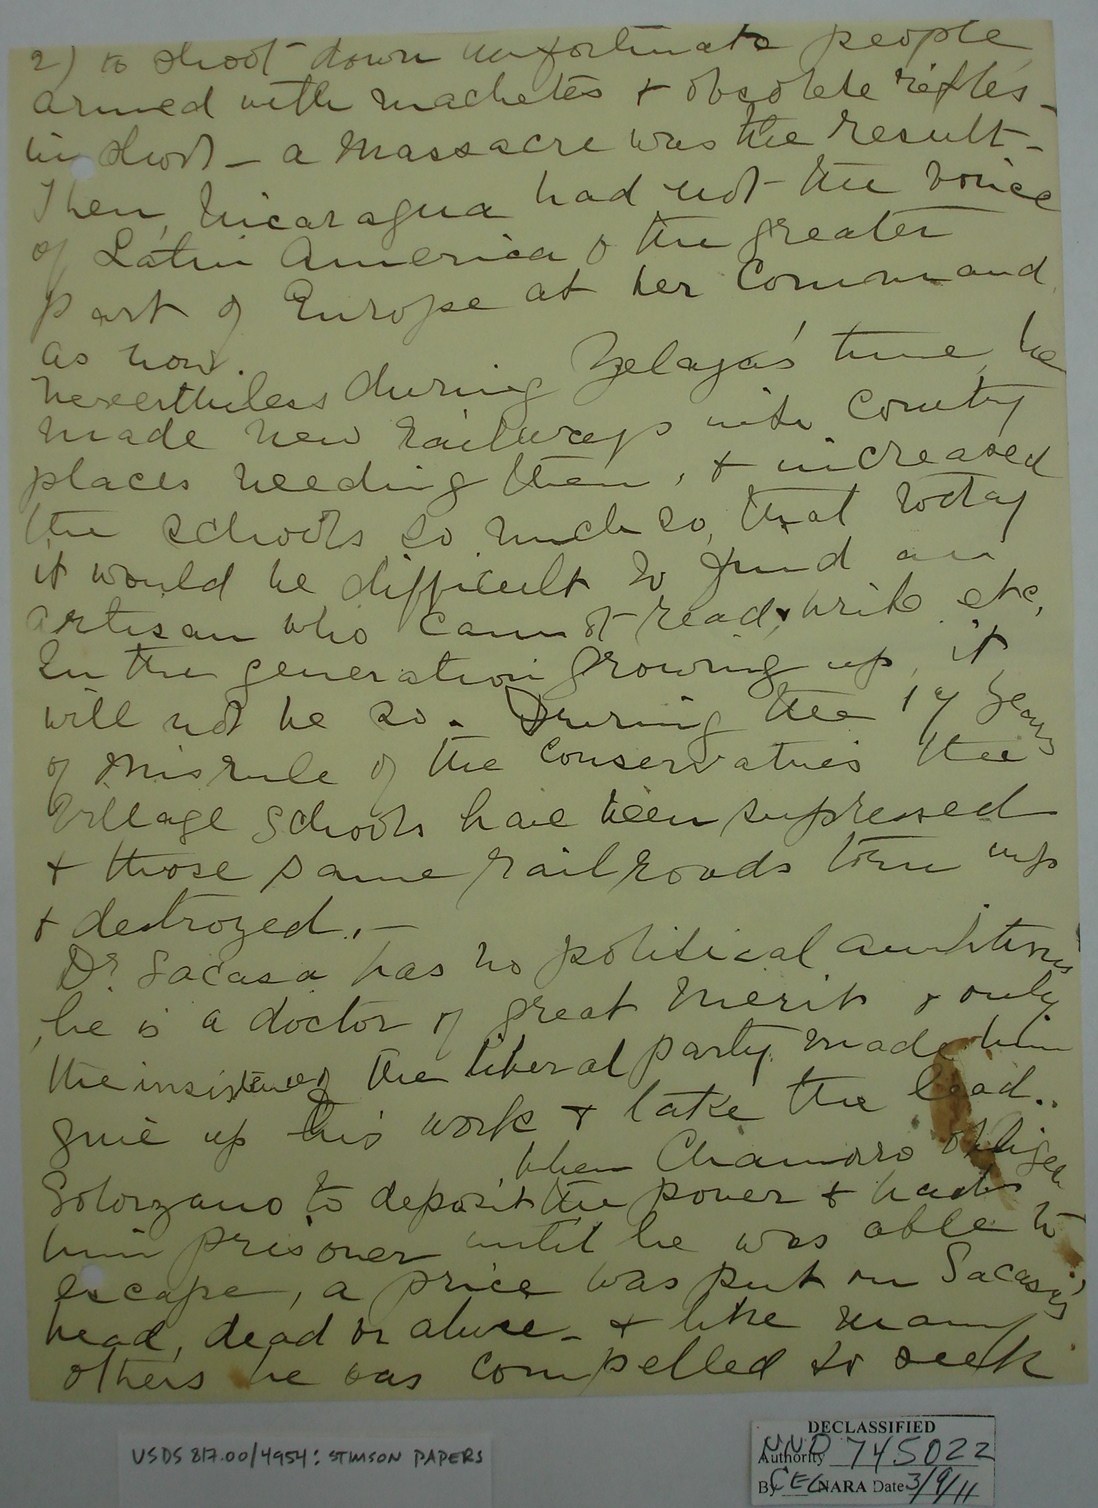 2) to shoot down unfortunate people
armed with machetes & obsolete rifles -
in short - a massacre was the result -
Then, Nicaragua had not the voice
of Latin America & the greater
part of Europe at her command
as now.
Nevertheless during Zelaya's time, he
made new railways into country
places needing them, & increased
the schools so much so, that today
it would be difficult to find an
artisan who cannot read, & write etc.
In the generation growing up, it
will not be so. During the 17 years
of misrule of the conservatives the
village schools have been supressed
& those same railroads torn up
& destroyed. -
Dr Sacasa has no political ambitions
he is a doctor of great merit & only
the insistence of the liberal party made him
give up his work & take the lead..
When Chamorro obliged
Solorzano to deposit the power &
him prisoner until he was able to
escape, a price was put on Sacasa's
head, dead or alive - & like many
others he was compelled to seek
USDS 817.00/4954: STIMSON PAPERS
DECLASSIFIED
Authority NND 745022
By CEG NARA Date 3/9/11